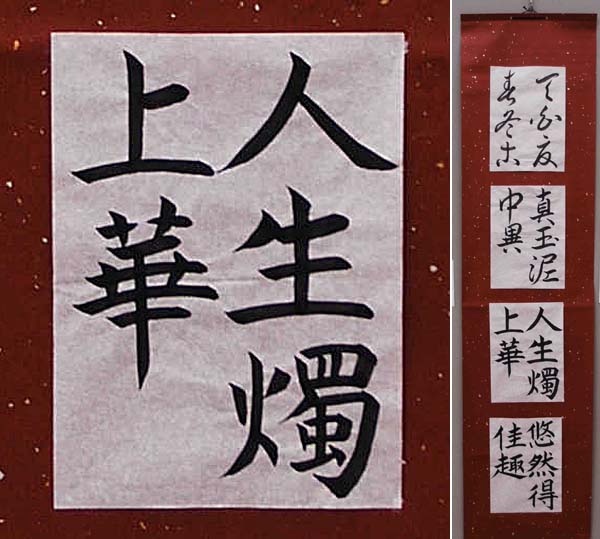 人生燭
上華
真玉泥
中異
人生燭
上華
悠然得
佳趣